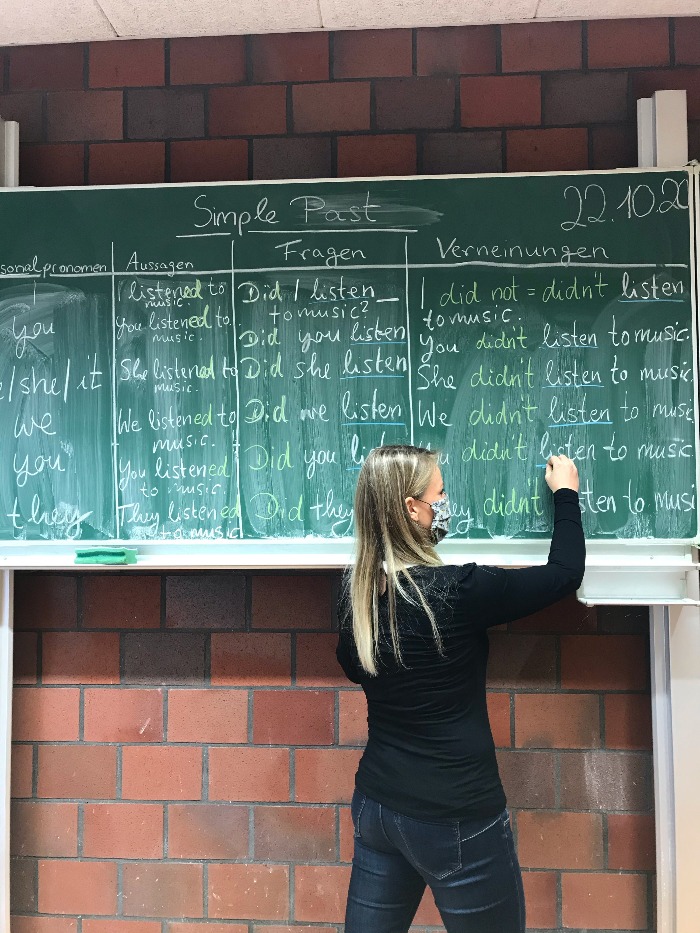 Simple Past
22.10.20
sonalpronomen Aussagen Fragen Verneinungen
I I listened to music. Did I listen _ to music? I did not = didn't listen to music.
You You listened to music. Did you listen You didn't listen to music.
/she/it She listened to music. Did she listen She didn't listen to music
We We listened to music. Did we listen We didn't listen to music
You You listened to music. Did you didn't listen to music
they They listened to music Did they didn't to mus